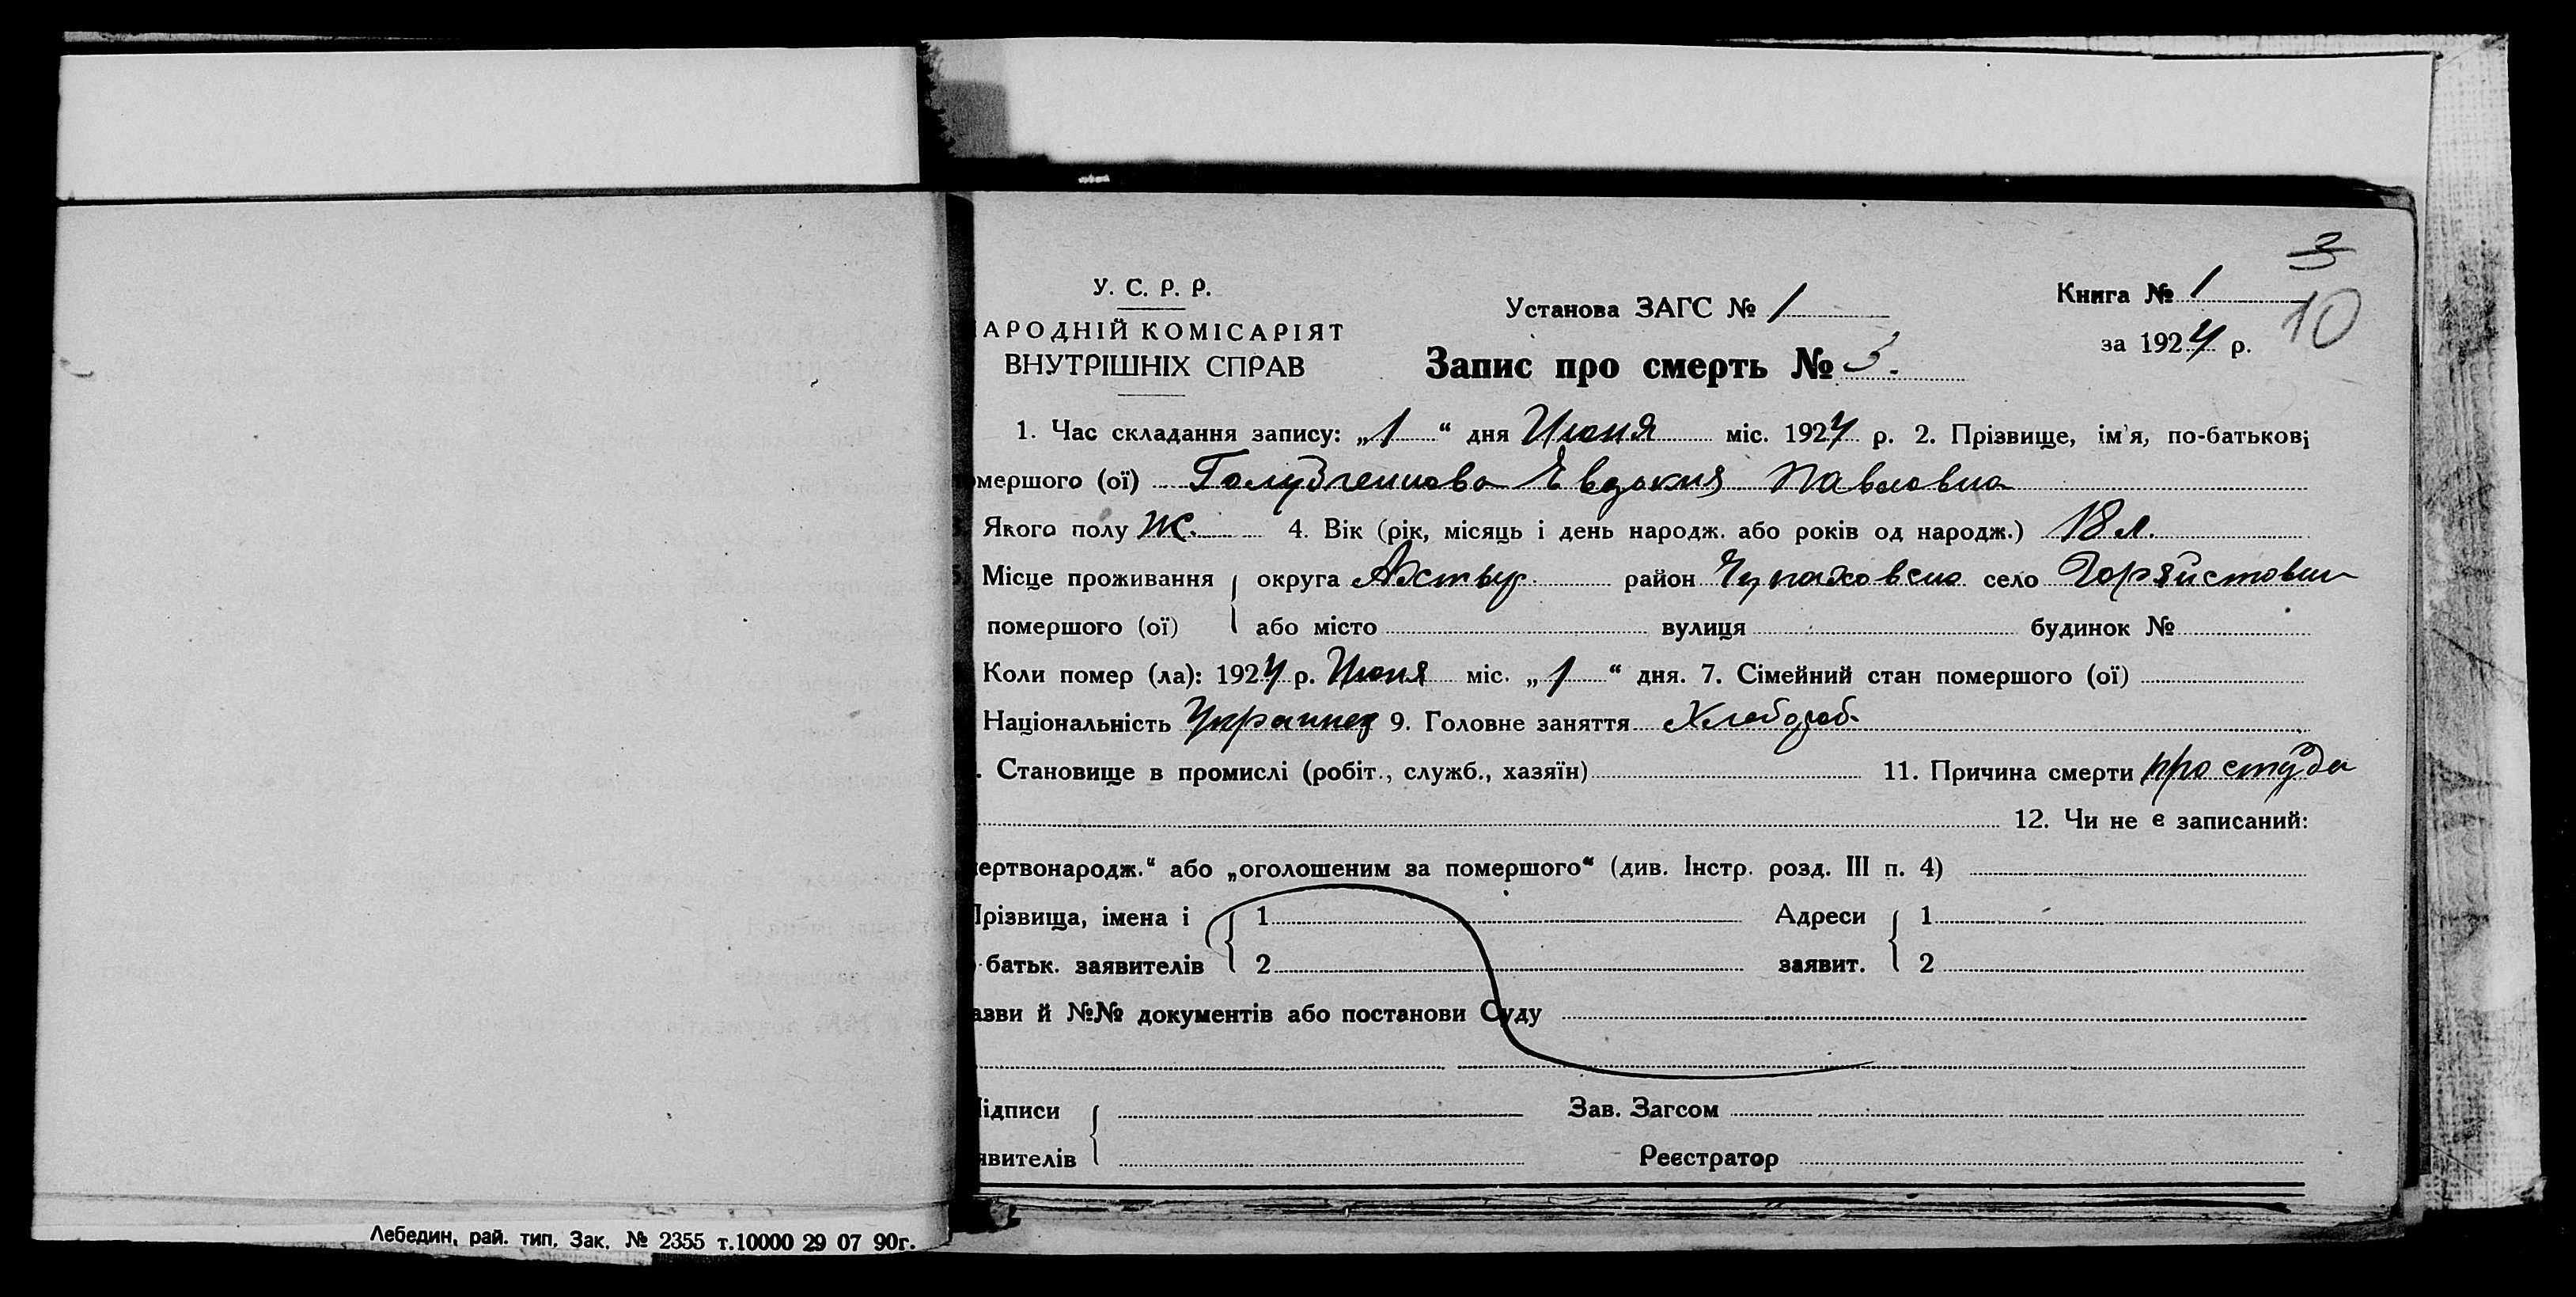 3
10
У. С. Р. Р.
АРОДНІЙ КОМІСАРІЯТ
ВНУТРІШНІХ СПРАВ
Установа ЗАГС № 1
Книга № 1
за 1924 р.
Запис про смерть № 3.
1. Час складання запису: „1“ дня Июня міс. 1924 р. 2. Прізвище, ім'я, по-батькові
мершого (ої) Евдокия Павловна
Якого полу Ж. 4. Вік (рік, місяць і день народж. або років од народж.) 18 л.
Місце проживання округа Ахтыр. район село
помершого (ої) або місто вулиця будинок №
Коли помер (ла): 1924 р. Июня міс. „1“ дня. 7. Сімейний стан помершого (ої)
Національність 9. Головне заняття Хлебороб.
. Становище в промислі (робіт., служб., хазяїн) 11. Причина смерти простуда
12. Чи не є записаний:
ертвонародж.“ або „оголошеним за помершого“ (див. Інстр. розд. III п. 4)
Прізвища, імена і 1 Адреси 1
батьк. заявителів 2 заявит. 2
азви й №№ документів або постанови Суду
ідписи Зав. Загсом
явителів Реєстратор
Лебедин, рай. тип. Зак. № 2355 т.10000 29 07 90г.